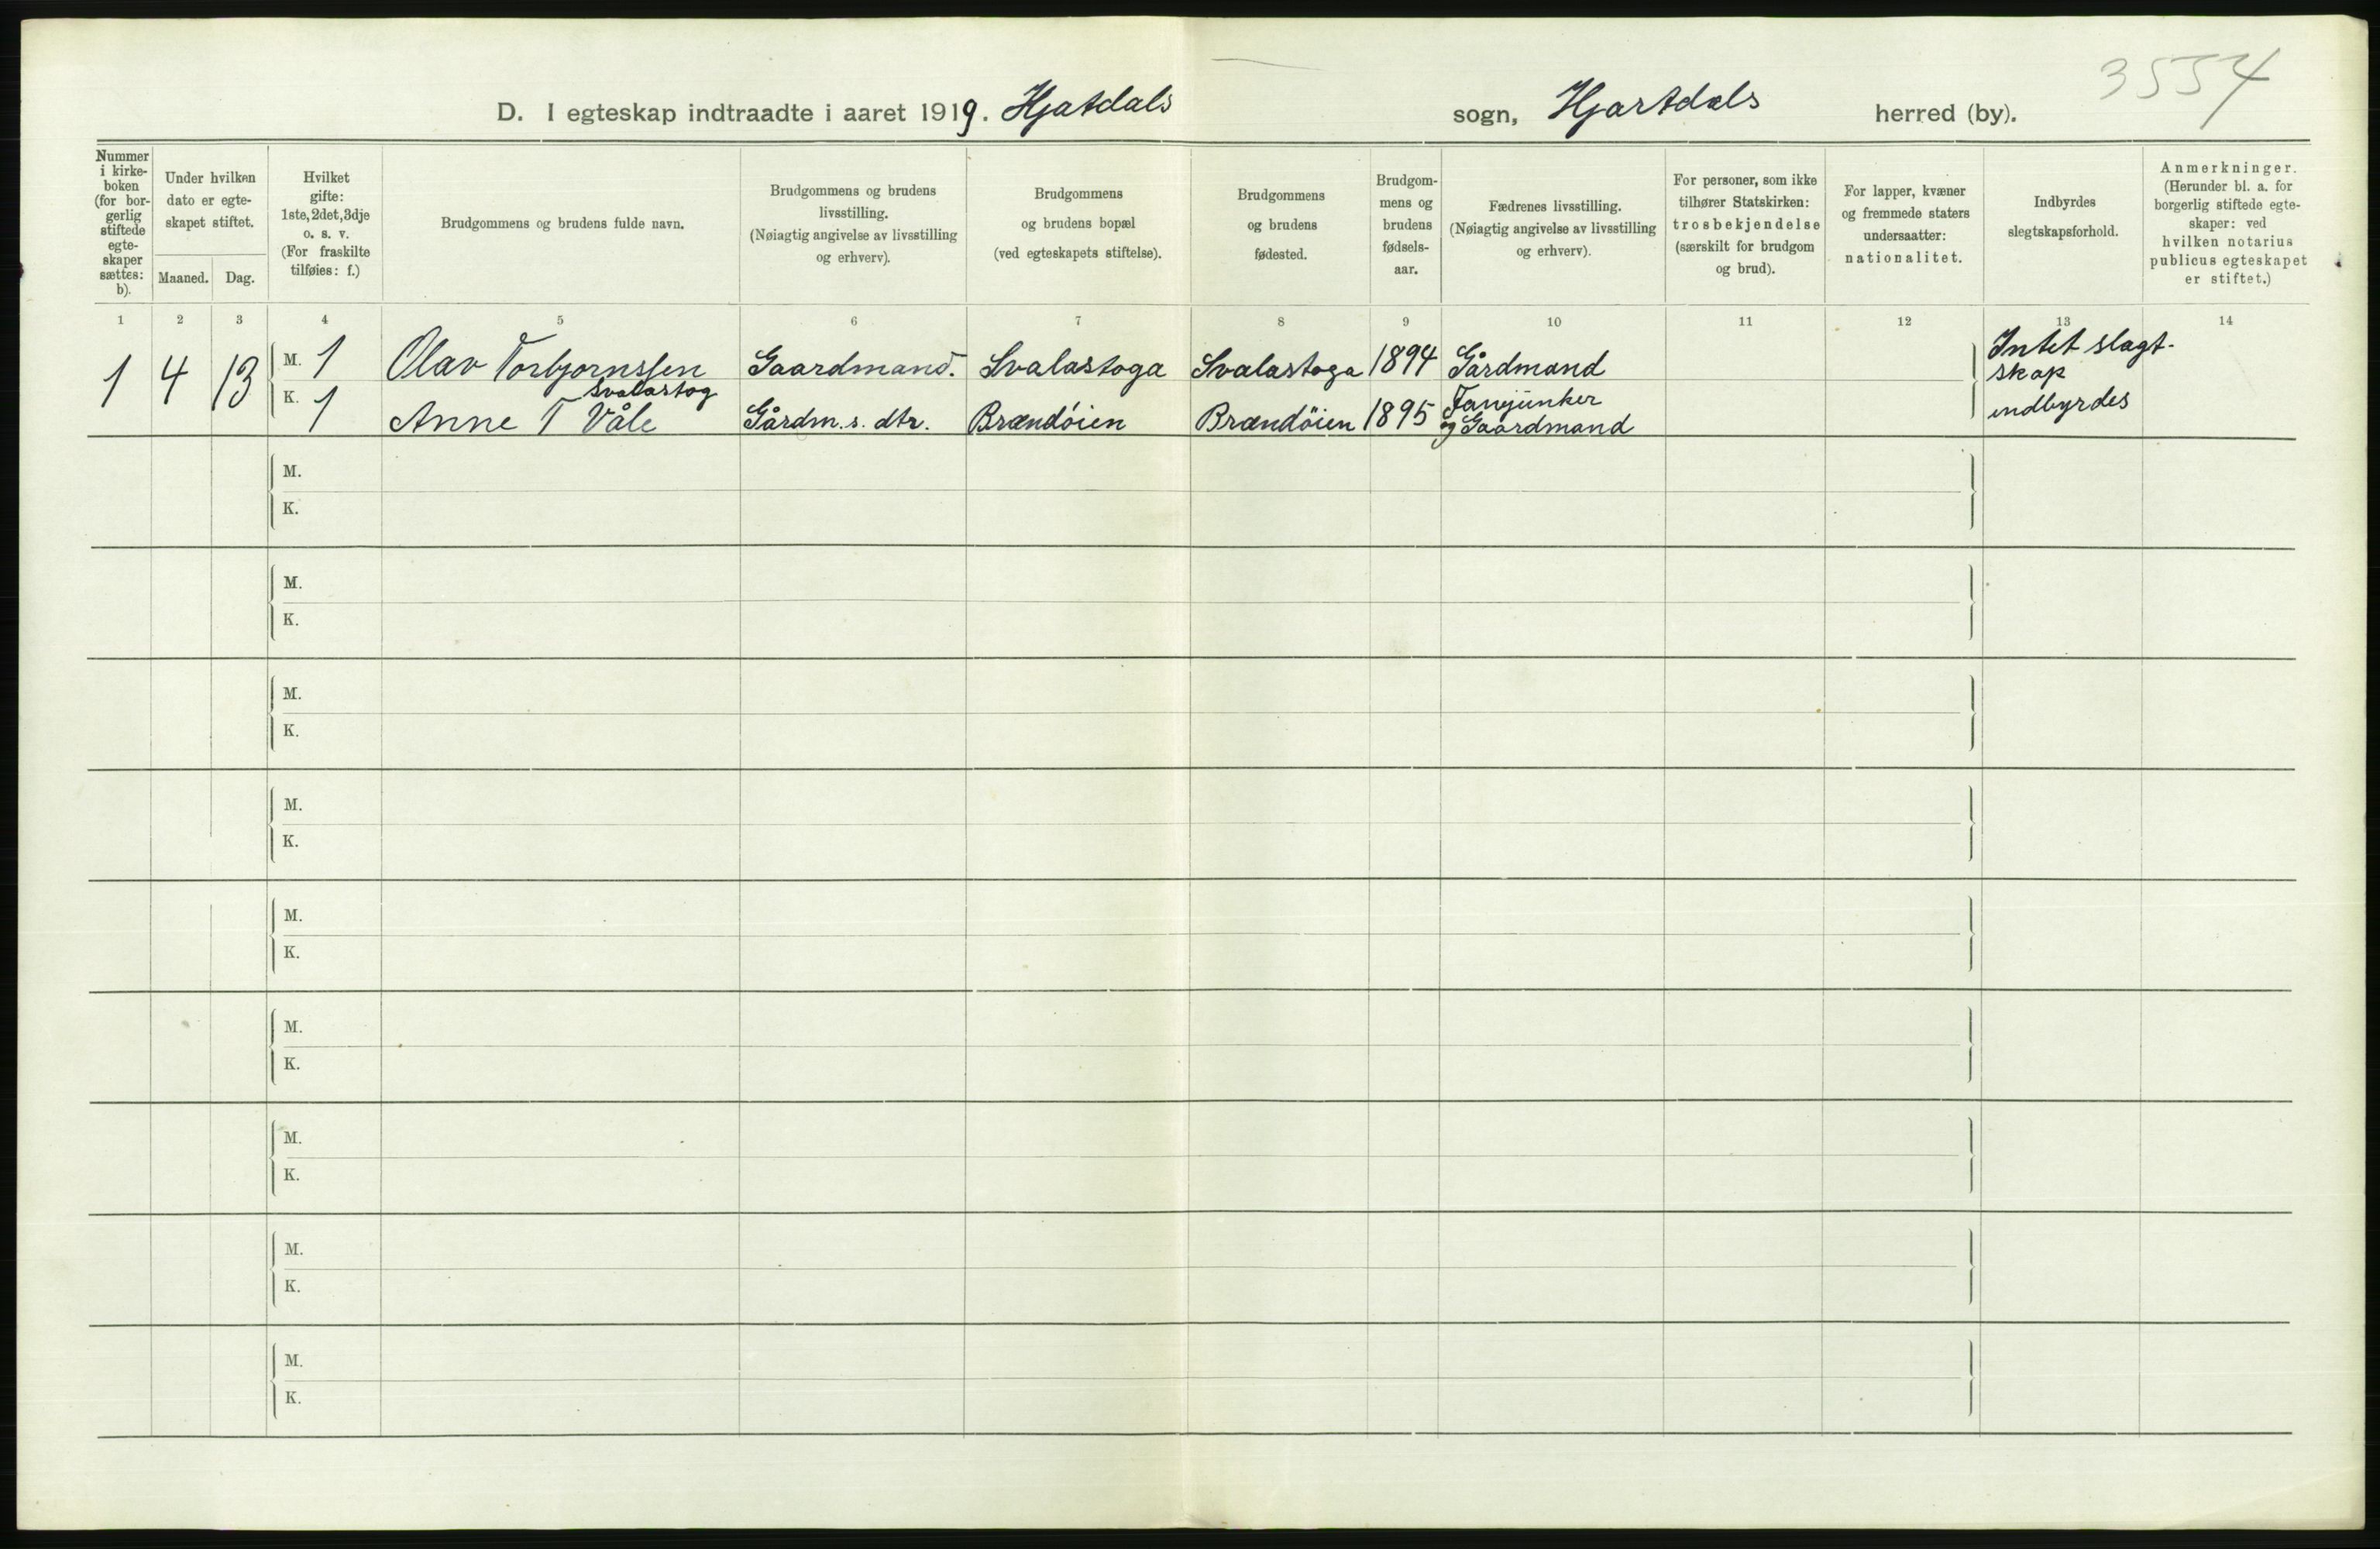 3554
D. I egteskap indtraadte i aaret 1919. Hjatdals sogn, Hjartdals herred (by).
Nummer i kirke- boken (for bor- gerlig stiftede egte- skaper sættes: b).
Under hvilken dato er egte- skapet stiftet.
Maaned. Dag.
Hvilket gifte: 1ste, 2det, 3dje o. s. v. (For fraskilte tilføies: f.)
Brudgommens og brudens fulde navn.
Brudgommens og brudens livsstilling. (Nøiagtig angivelse av livsstilling og erhverv).
Brudgommens og brudens bopæl (ved egteskapets stiftelse).
Brudgommens og brudens fødested.
Brudgom- mens og brudens fødsels- aar.
Fædrenes livsstilling. (Nøiagtig angivelse av livsstilling og erhverv).
For personer, som ikke tilhører Statskirken: trosbekjendelse (særskilt for brudgom og brud).
For lapper, kvæner og fremmede staters undersaatter: nationalitet.
Indbyrdes slegtskapsforhold.
Anmerkninger. (Herunder bl. a. for borgerlig stiftede egte- skaper: ved hvilken notarius publicus egteskapet er stiftet.)
1 2 3 4 5 6 7 8 9 10 11 12 13 14
1 4 13 M. 1 Olav Torbjornssen Svalastog Gaardmand. Svalastoga Svalastoga 1894 Gårdmand Intet slagt- skap indbyrdes
K. 1 Anne T Våle Gårdm.s. dtr. Brændöien Brændöien 1895 Fanejunker og Gaardmand
M.
K.
M.
K.
M.
K.
M.
K.
M.
K.
M.
K.
M.
K.
M.
K.
M.
K.